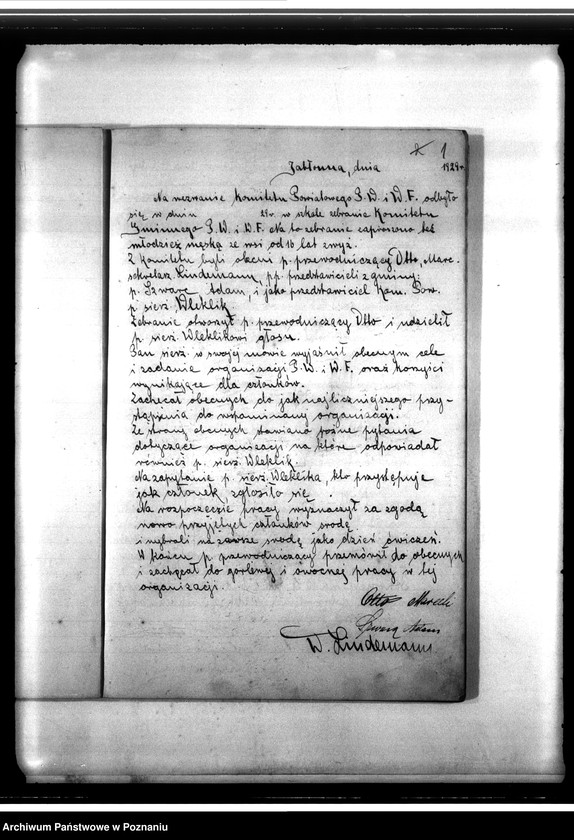 1
Jabłonna, dnia 1929 r.
Na wezwanie Komitetu Powiatowego P.W. i W.F. odbyło
się w dniu 29 r. w szkole zebranie Komitetu
Gminnego P.W. i W.F. Na to zebranie zaproszono też
młodzież męską ze wsi od 16 lat zwyż.
Z Komitetu byli obecni p. przewodniczący Otto, Marc.
sekretarz Lindemann, pp. przedstawicieli z gminy:
p. Szwarc Adam, i jako przedstawiciel Kom. Pow.
p. sierż. Wleklik.
Zebranie otworzył p. przewodniczący Otto i udzielił
p. sierż. Wleklikowi głosu.
Pan sierż. w swojej mowie wyjaśnił obecnym cele
i zadania organizacji P.W. i W.F. oraz korzyści
wynikające dla członków.
Zachęcał obecnych do jak najliczniejszego przy-
stąpienia do wspominanej organizacji.
Ze strony obecnych stawiano różne pytania
dotyczące organizacji na które odpowiadał
również p. sierż. Wleklik.
Na zapytanie p. sierż. Wleklika, kto przystępuje
jak członek, zgłosiło się .
Na rozpoczęcie pracy wyznaczył za zgodą
nowo przyjętych członków środę
i wybrali na zawsze środę jako dzień ćwiczeń.
W końcu p. przewodniczący przemówił do obecnych
i zachęcał do gorliwej i owocnej pracy w tej
organizacji.
Otto
Szwarc Adam
W. Lindemann
Archiwum Państwowe w Poznaniu